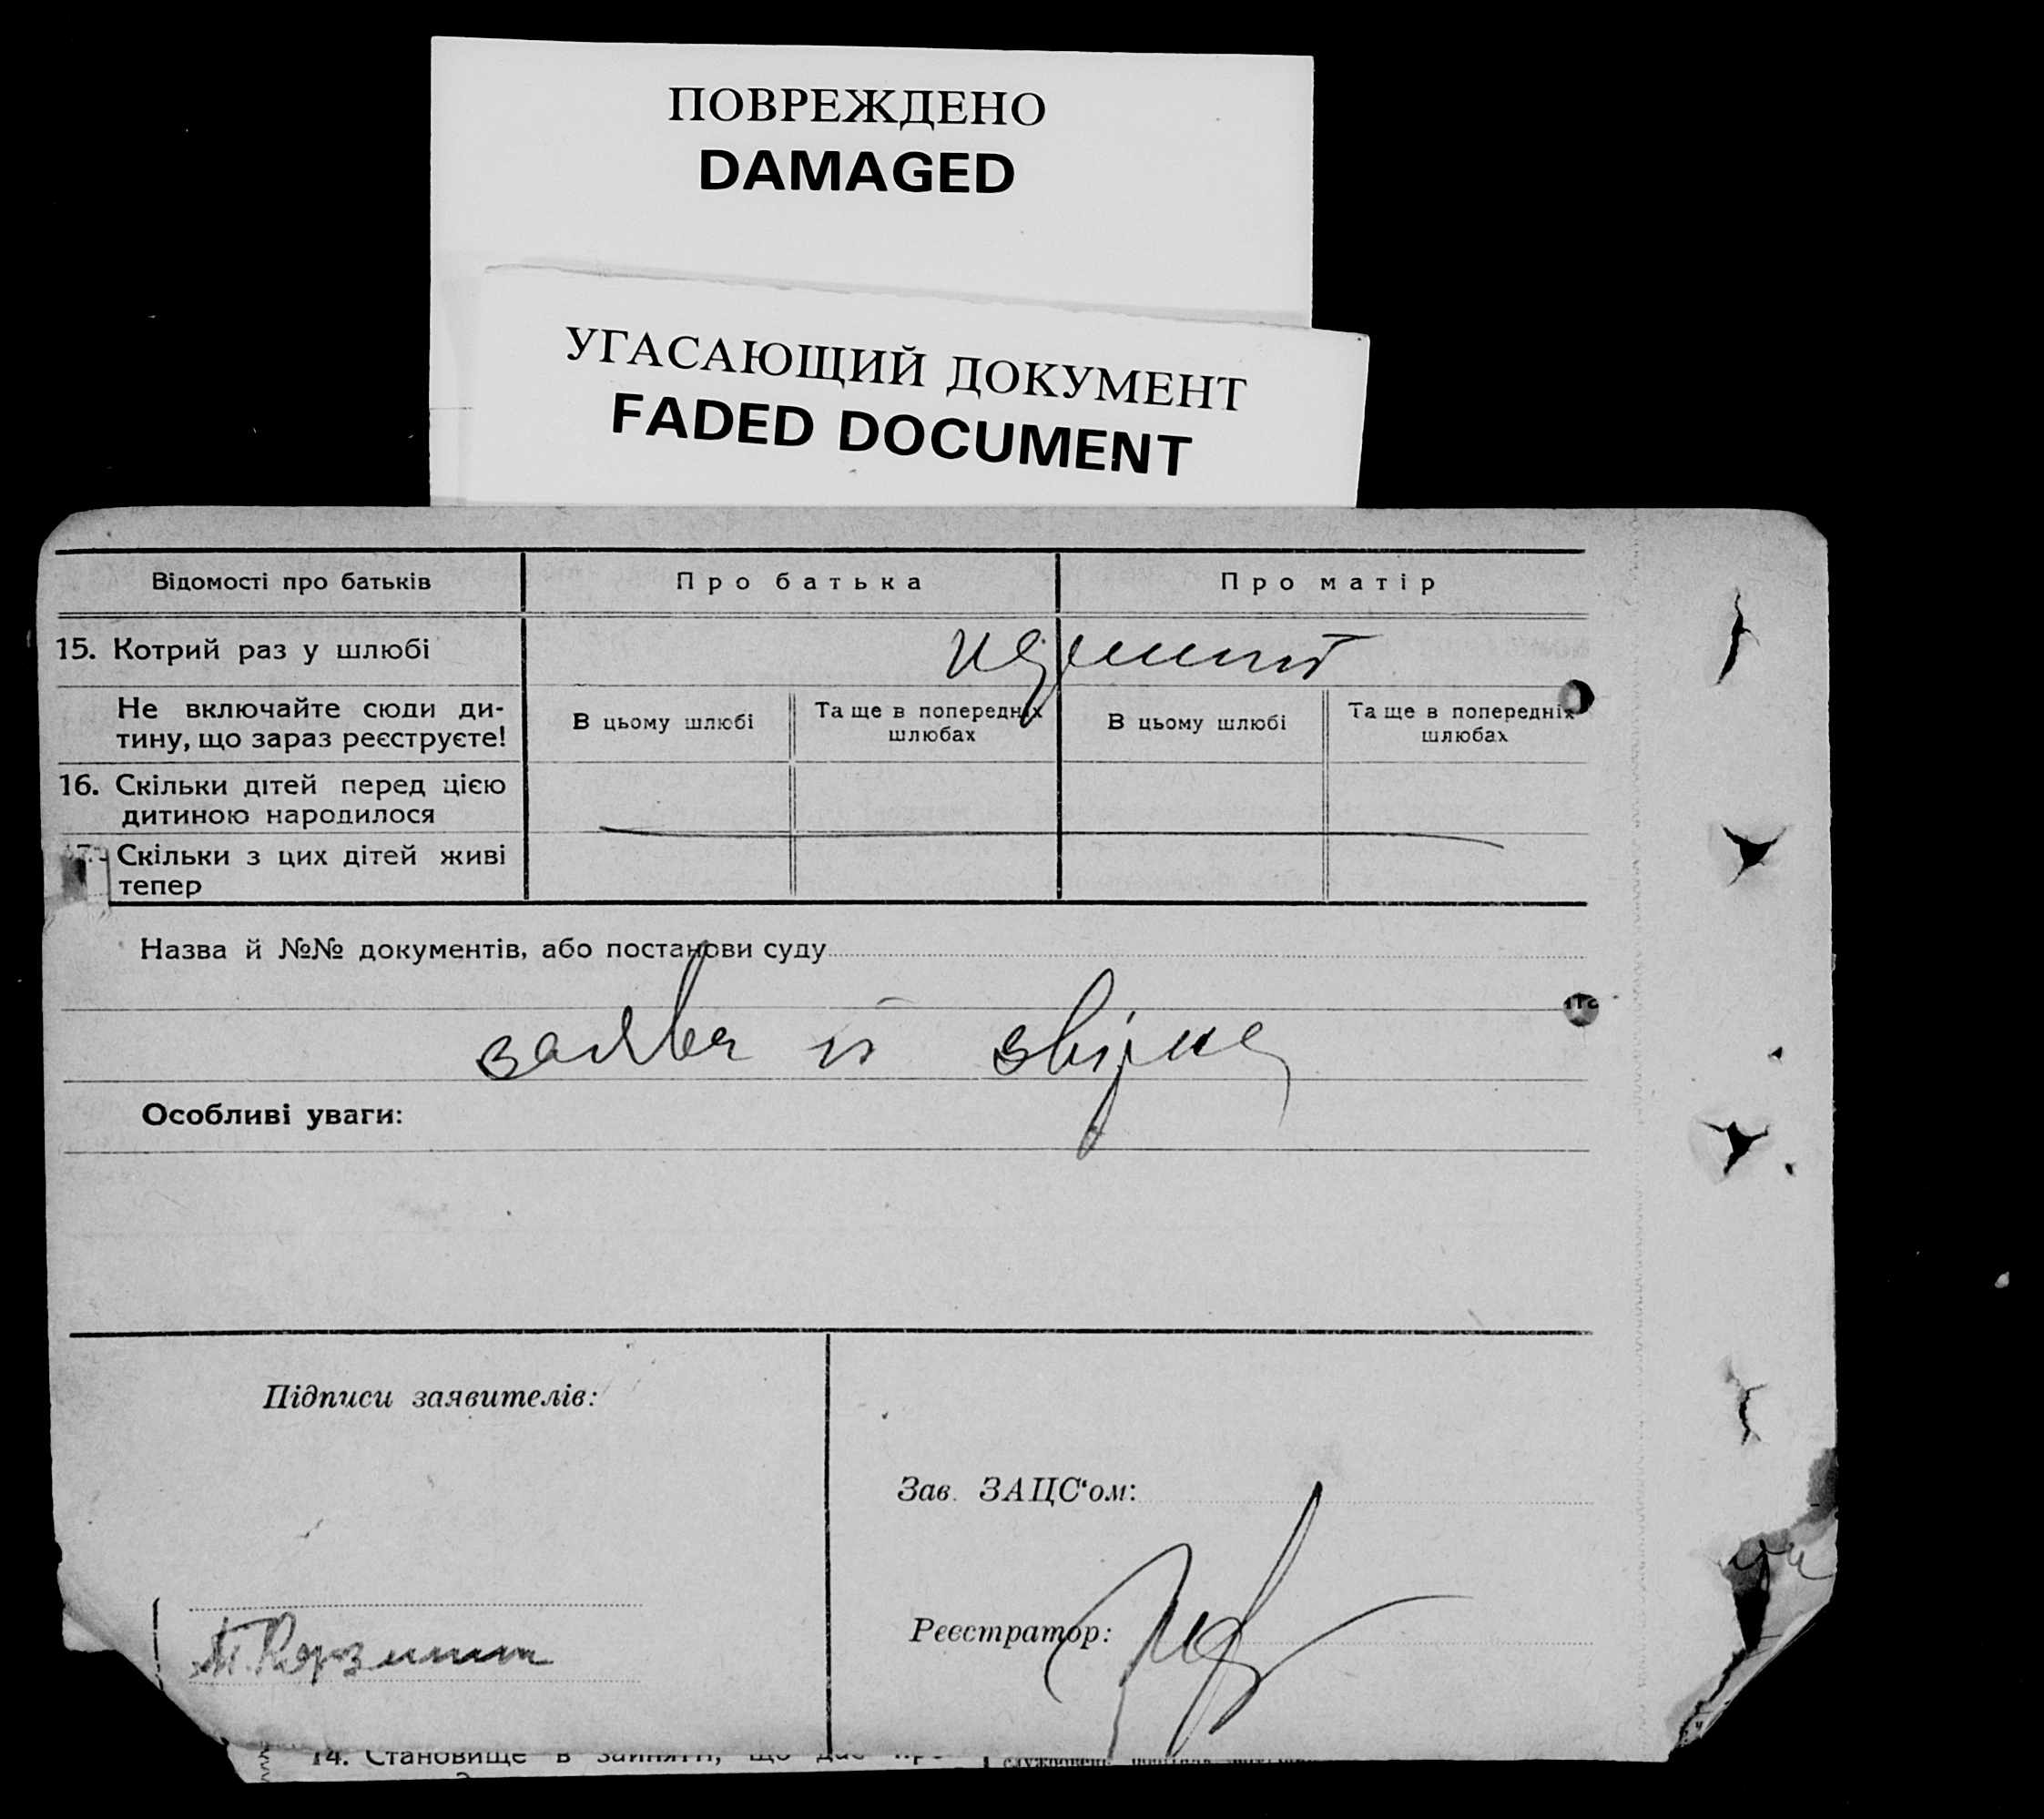 ПОВРЕЖДЕНО
DAMAGED
УГАСАЮЩИЙ ДОКУМЕНТ
FADED DOCUMENT
Відомості про батьків Про батька Про матір
15. Котрий раз у шлюбі
Не включайте сюди ди-
тину, що зараз реєструєте!
В цьому шлюбі
Та ще в попередніх
шлюбах
В цьому шлюбі
Та ще в попередніх
шлюбах
16. Скільки дітей перед цією
дитиною народилося
Скільки з цих дітей живі
тепер
Назва й №№ документів, або постанови суду
заява й
Особливі уваги:
Підписи заявителів:
Зав. ЗАЦС‘ом:
Реєстратор:
14. Становище в занятті, що дає